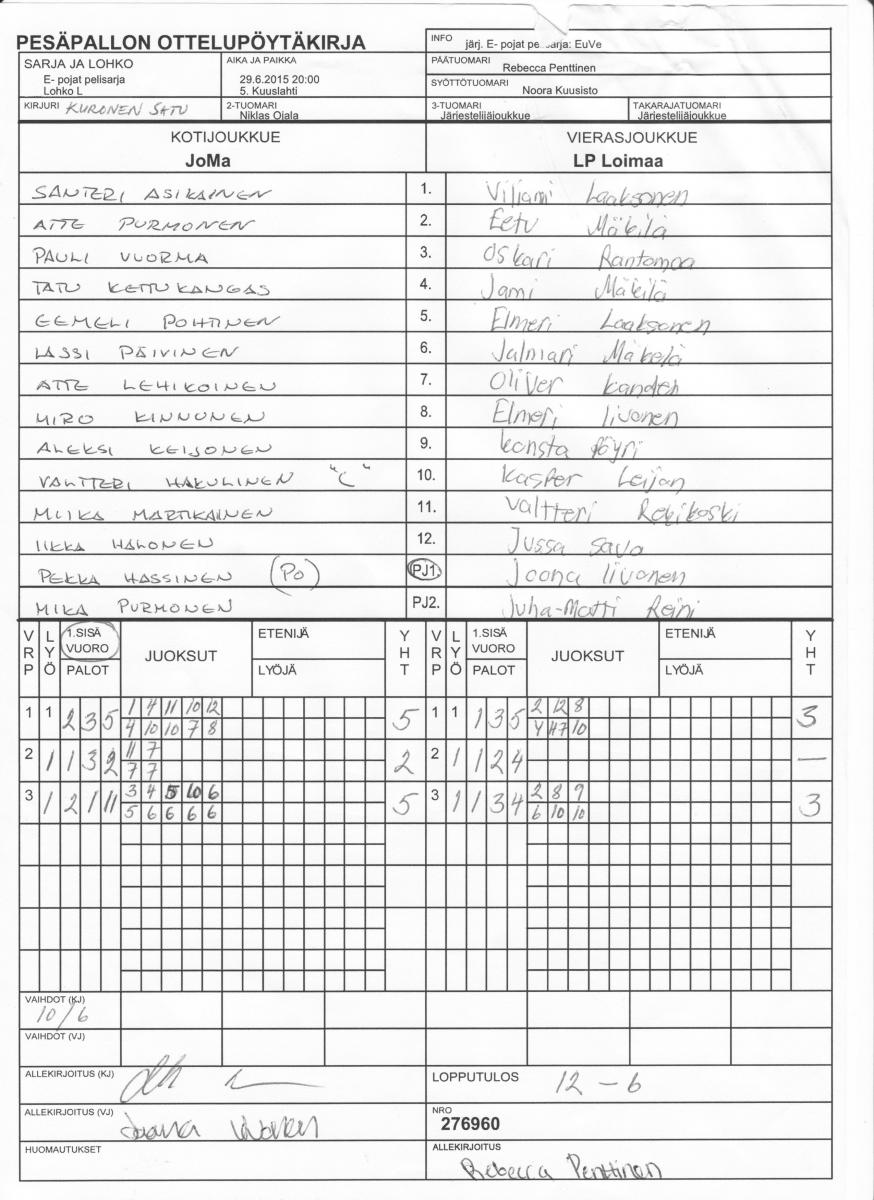 PESÄPALLON OTTELUPÖYTÄKIRJA
INFO järj. E- pojat pe...sarja: EuVe
SARJA JA LOHKO
E- pojat pelisarja
Lohko L
AIKA JA PAIKKA
29.6.2015 20:00
5. Kuuslahti
PÄÄTUOMARI
Rebecca Penttinen
SYÖTTÖTUOMARI
Noora Kuusisto
KIRJURI KURONEN SATU
2-TUOMARI
Niklas Ojala
3-TUOMARI
Järjestelijäjoukkue
TAKARAJATUOMARI
Järjestelijäjoukkue
KOTIJOUKKUE
JoMa
VIERASJOUKKUE
LP Loimaa
SANTERI ASIKAINEN 1. Viljami Laaksonen
ATTE PURMONEN 2. Eetu Mäkilä
PAULI VUORMA 3. Oskari Rantamaa
TATU KETTUKANGAS 4. Jami Mäkilä
EEMELI POHTINEN 5. Elmeri Laaksonen
LASSI PÄIVINEN 6. Jalmari Mäkelä
ATTE LEHIKOINEN 7. Oliver Kandeh
MIRO KINNUNEN 8. Elmeri Iivonen
ALEKSI KEIJONEN 9. Konsta Pöyri
VALTTERI HAKULINEN "C" 10. Kasper Leijan
MIIKA MARTIKAINEN 11. Valtteri
IIKKA HALONEN 12. Jussa Savo
PEKKA HASSINEN (PO) PJ1. Joona Iivonen
MIKA PURMONEN PJ2. Juha-Matti Reini
VRP LYÖ 1.SISÄ VUORO PALOT JUOKSUT ETENIJÄ LYÖJÄ YHT VRP LYÖ 1.SISÄ VUORO PALOT JUOKSUT ETENIJÄ LYÖJÄ YHT
1 1 2 3 5 1 4 11 10 12 5 1 1 1 3 5 2 12 8 3
4 10 10 7 8 4 47 10
2 1 1 3 2 11 7 2 2 1 1 2 4 —
7 7
3 1 2 1 11 3 4 5 10 6 5 3 1 1 3 4 2 8 9 3
5 6 6 6 6 6 10 10
VAIHDOT (KJ)
10/6
VAIHDOT (VJ)
ALLEKIRJOITUS (KJ)
LOPPUTULOS 12 - 6
ALLEKIRJOITUS (VJ) Joona Iivonen
NRO
276960
HUOMAUTUKSET
ALLEKIRJOITUS
Rebecca Penttinen